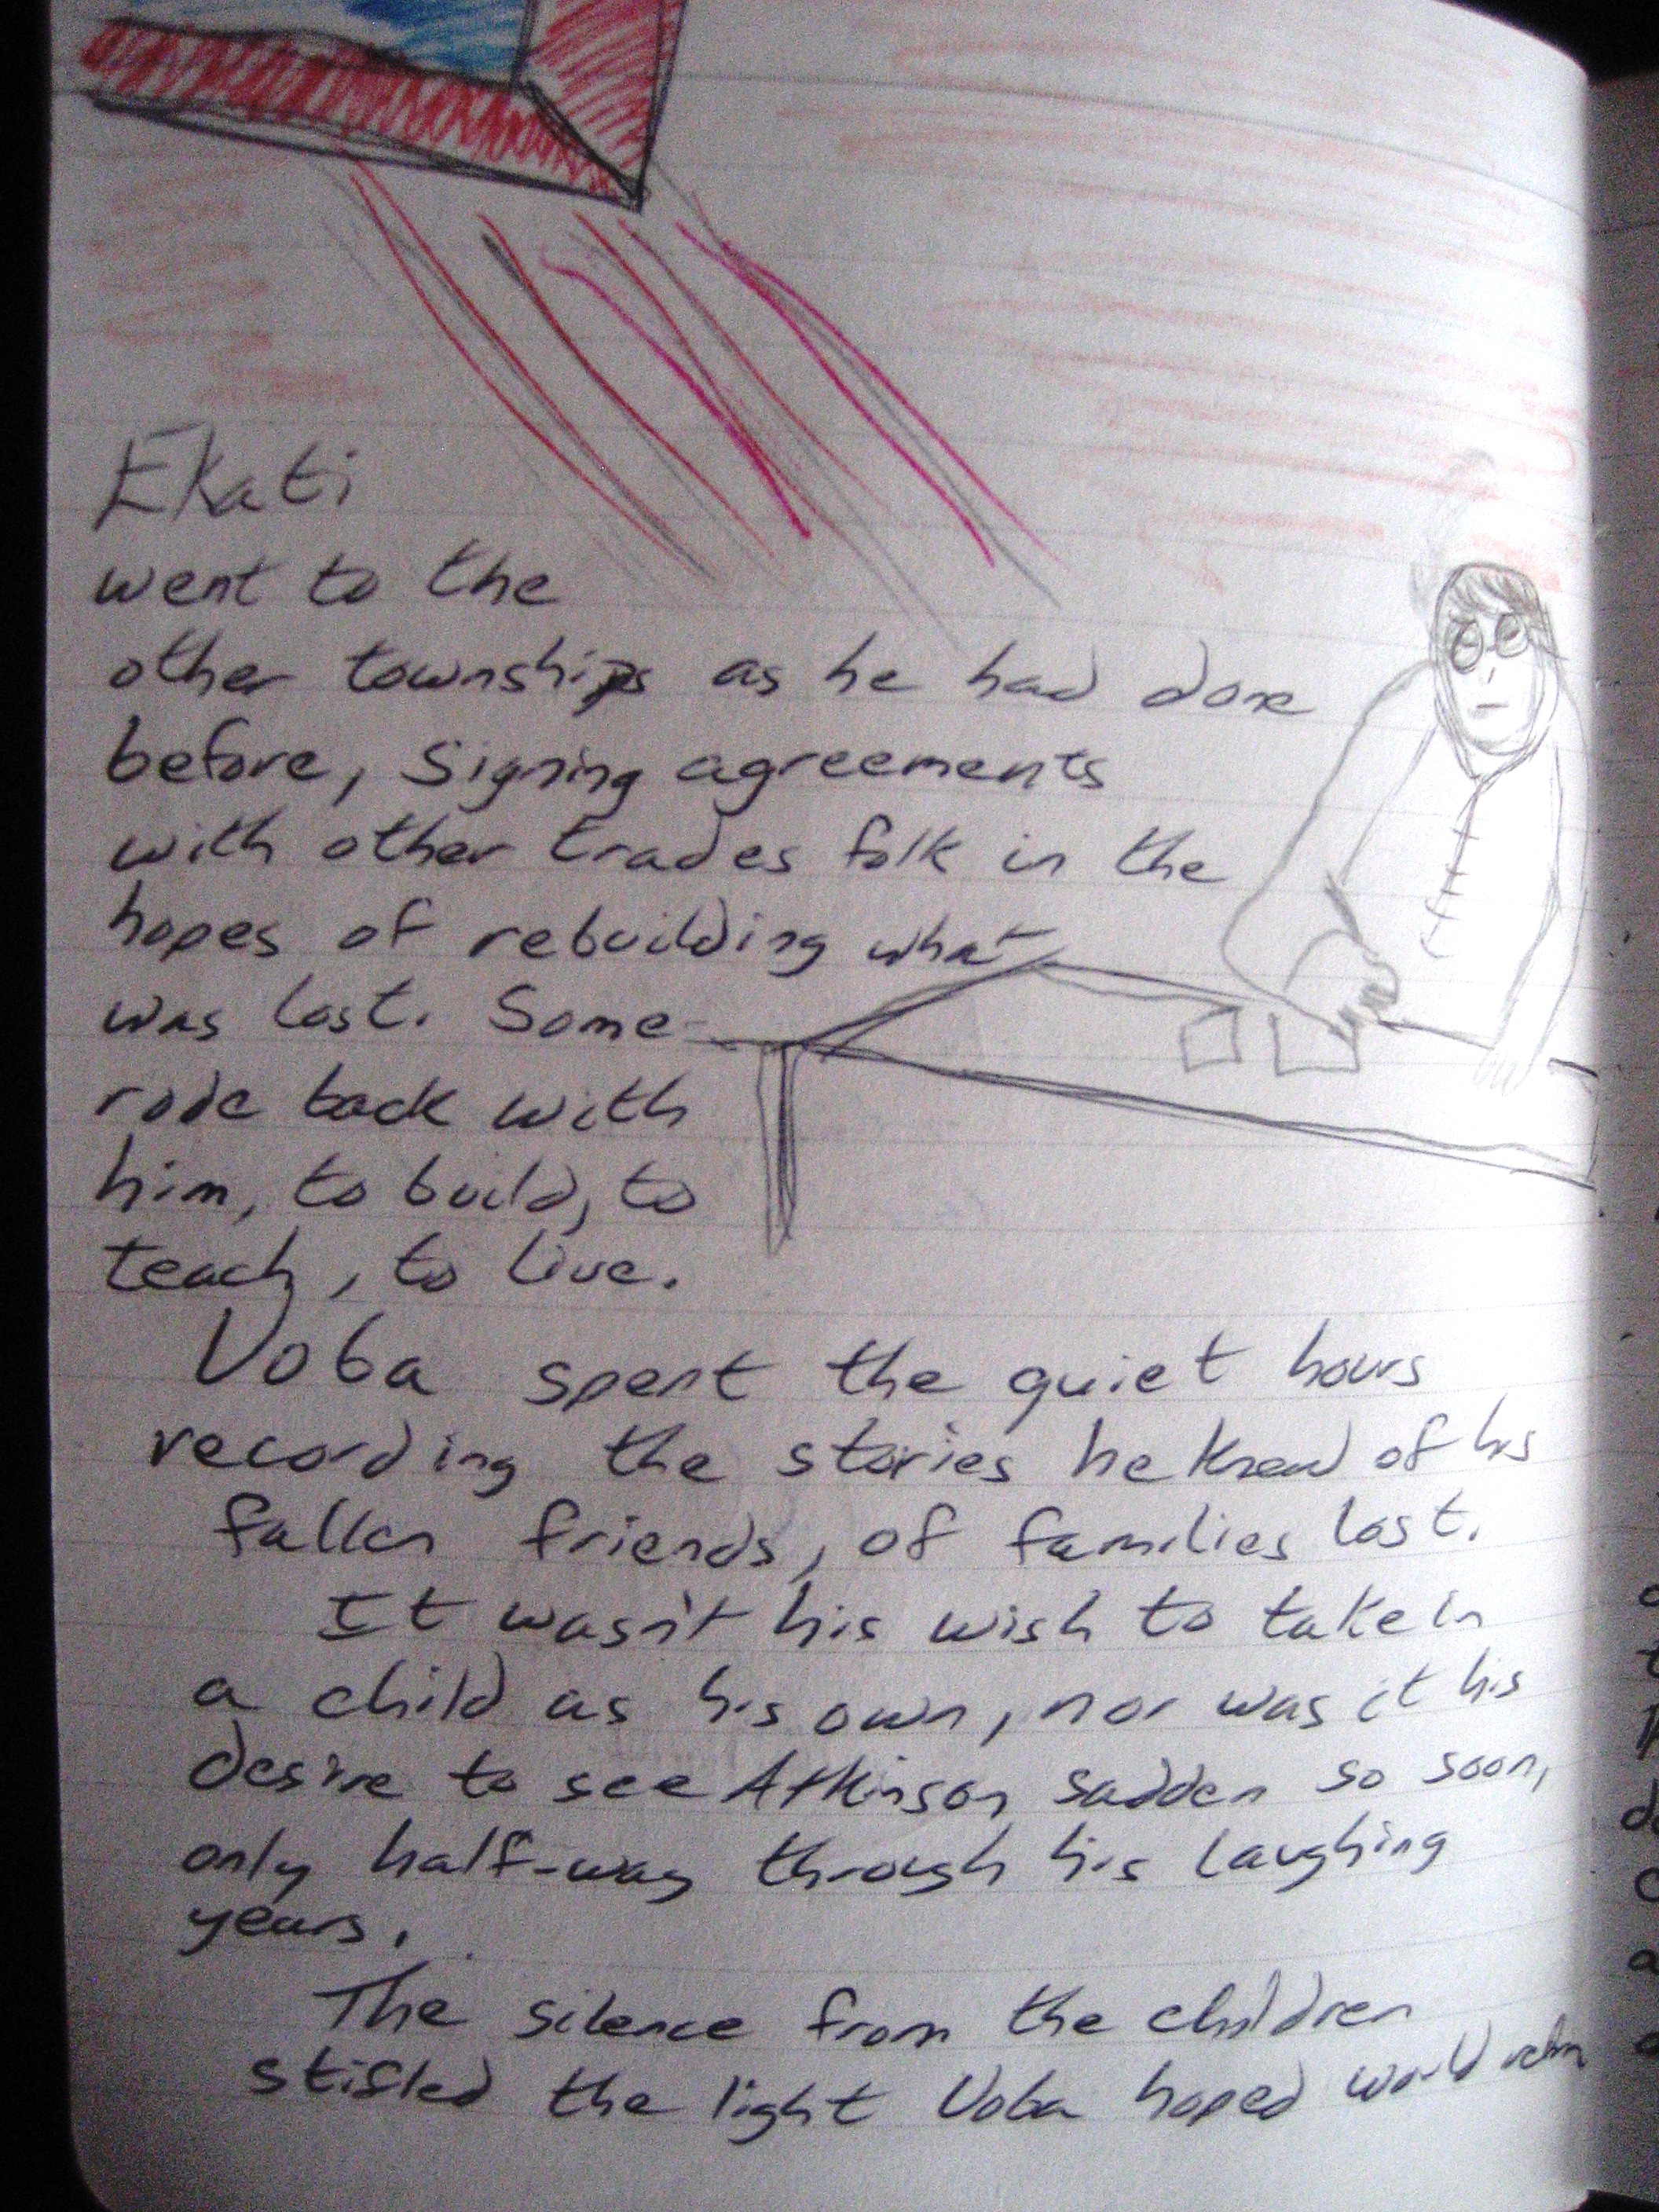 Ekati
went to the
other townships as he had done
before, signing agreements
with other trades folk in the
hopes of rebuilding what
was lost. Some
rode back with
him, to build, to
teach, to live.
Voba spent the quiet hours
recording the stories he knew of his
fallen friends, of families lost.
It wasn't his wish to take in
a child as his own, nor was it his
desire to see Atkinson sadden so soon,
only half-way through his laughing
years.
The silence from the children
stifled the light Voba hoped would return